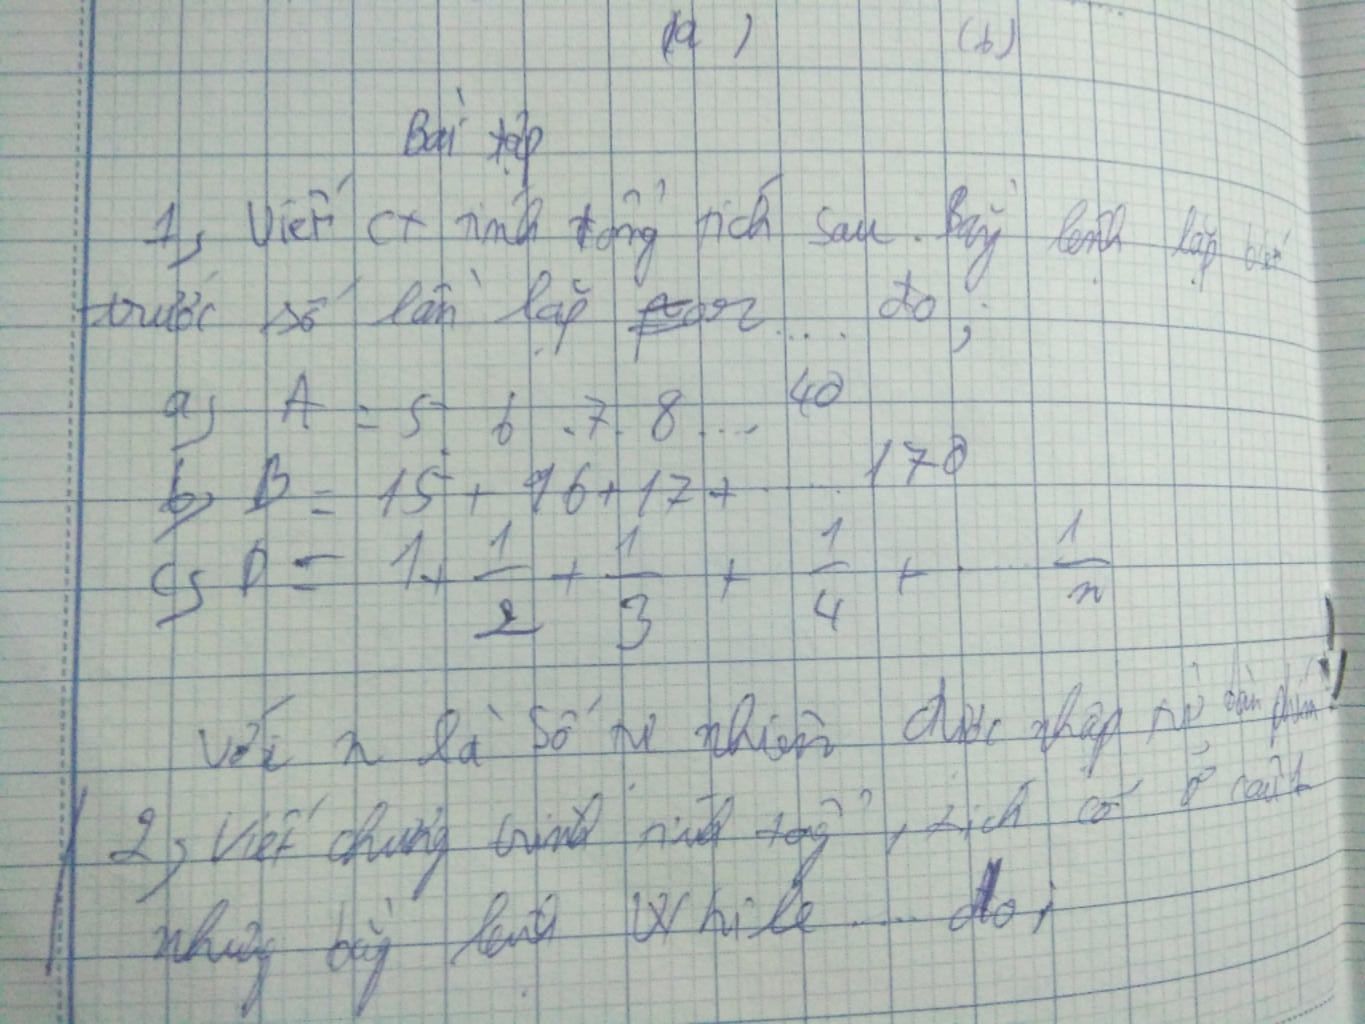 (a) (b)
Bài tập
1, Viết CT tính tổng tích sau. Bằng lệnh lặp biết
trước số lần lặp for .... do;
a, A = 5 . 6 . 7 . 8 .... 40
b, B = 15 + 16 + 17 + ..... 170
c, D = 1 + 1/2 + 1/3 + 1/4 + .... 1/n
Với n là số tự nhiên được nhập từ bàn phím
2, Viết chương trình tính tổng, tích có ở câu 1
nhưng bằng lệnh While .... do;